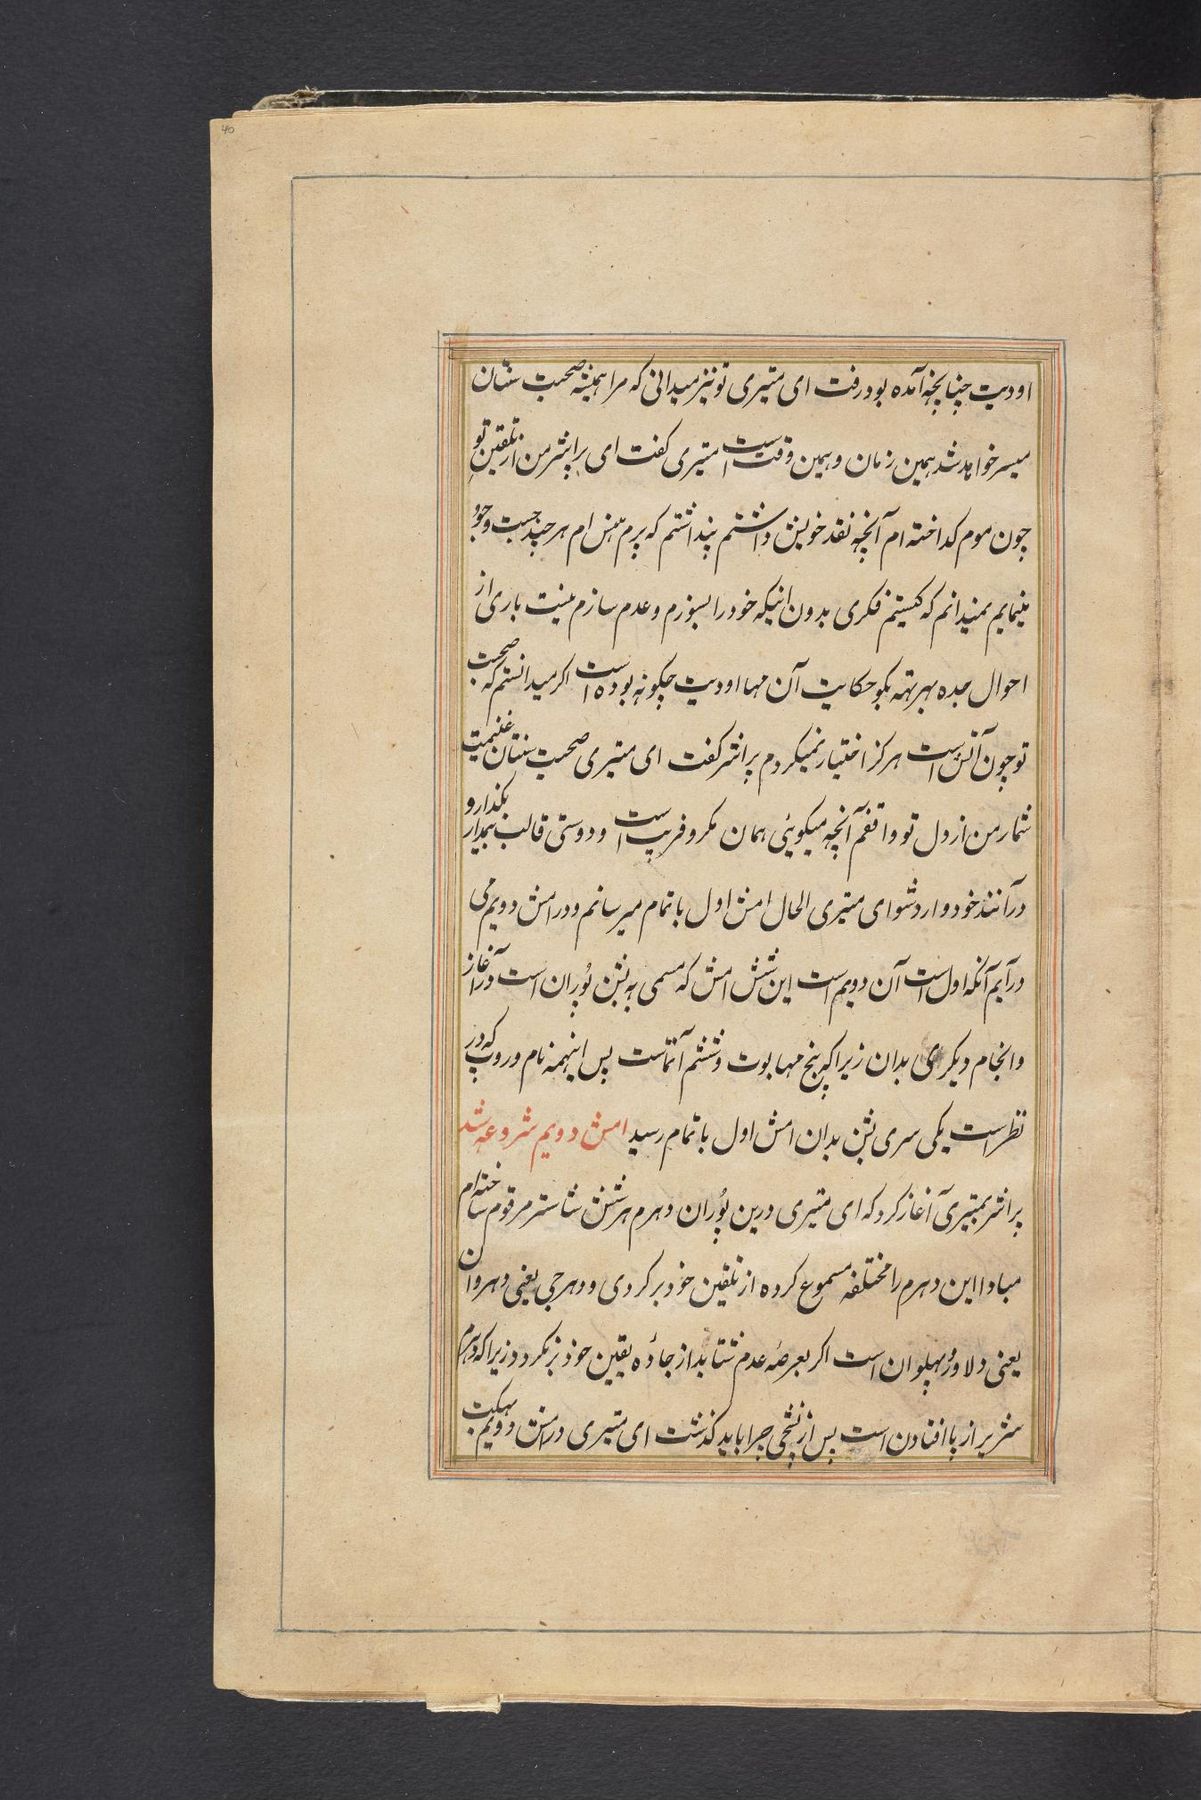 40
اودیت چنانچه آمده بود رفت ای متیری تو نیز میدانی که مرا همیشه صحبت سنتان
میسر خواهد شد همین زمان و همین وقت است متیری کفت ای پراشر من از تلقین تو
چون موم کداخته ام آنچه نقد خویش داشتم پنداشتم که پرم هنس ام هر چند جست وجو
مینمایم نمیدانم که کیستم فکری بدون اینکه خود را بسوزم و عدم سازم نیست باری از
احوال جده بهرتهه بکو حکایت آن مها اودیت چکونه بوده است اکر میدانستم که صحبت
تو چون آتش است هرکز اختیار نمیکردم پراشر کفت ای متیری صحبت سنتان غنیمت
شمار من از دل تو واقفم آنچه میکویئی همان مکر و فریب است و دوستی قالب بکذار و
درآنند خود وارد شو ای متیری الحال امش اول باتمام میرسانم و در امش دویم می
درآیم آنکه اول است آن دویم است این شش امش که مسمی به بشن پُوران است در آغاز
وانجام دیکرای بدان زیرا که پنج مهابوت وششم آتماست پس اینهمه نام و روپ که در
نظر است یکی سری بشن بدان امش اول باتمام رسید امش دویم شروعه شد
پراشر بمتیری آغاز کرد که ای متیری درین پُوران دهرم هر شش شاستر مرقوم ساخته ام
مبادا این دهرم را مختلفه مسموع کرده از تلقین خود برکردی و دهرجی یعنی دهروان
یعنی دلاور و پهلوان است اکر بعرصهٔ عدم شتابد از جادهٔ یقین خود برنکردد زیرا که دهرم
شریر از پا افتادن است پس از نشچی چرا باید کذشت ای متیری در امش دویم بهکت